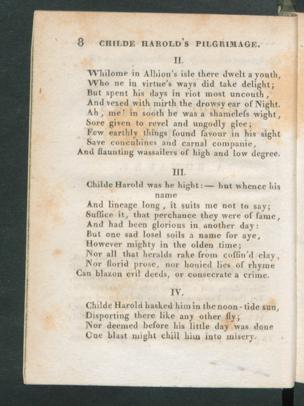 8 CHILDE HAROLD'S PILGRIMAGE.
II.
Whilome in Albion's isle there dwelt a youth,
Who ne in virtue's ways did take delight;
But spent his days in riot most uncouth,
And vexed with mirth the drowsy ear of Night.
Ah, me! in sooth he was a shameless wight,
Sore given to revel and ungodly glee;
Few earthly things found favour in his sight
Save concubines and carnal companie,
And flaunting wassailers of high and low degree.
III.
Childe Harold was he hight: — but whence his
name
And lineage long, it suits me not to say;
Suffice it, that perchance they were of fame,
And had been glorious in another day:
But one sad losel soils a name for aye,
However mighty in the olden time;
Nor all that heralds rake from coffin'd clay,
Nor florid prose, nor honied lies of rhyme
Can blazon evil deeds, or consecrate a crime.
IV.
Childe Harold basked him in the noon-tide sun,
Disporting there like any other fly;
Nor deemed before his little day was done
One blast might chill him into misery.